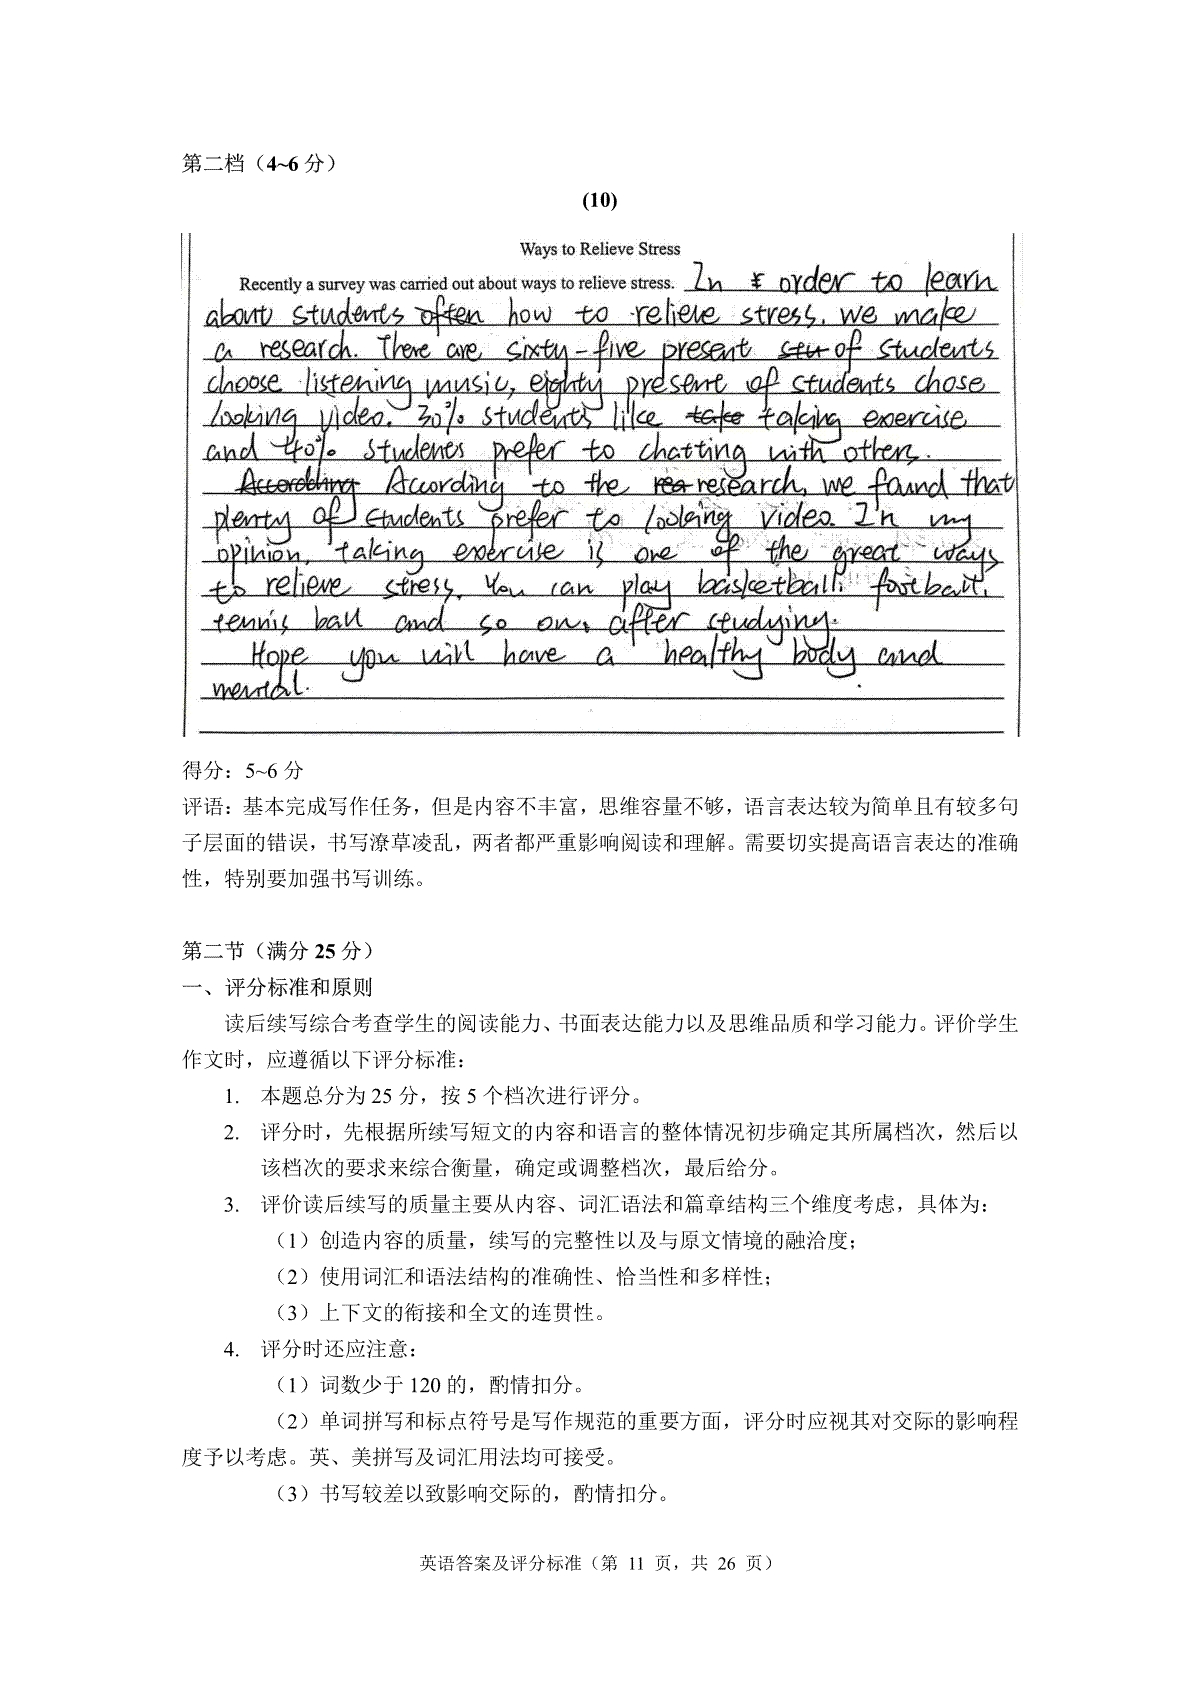 第二档（4~6 分）
(10)
Ways to Relieve Stress
Recently a survey was carried out about ways to relieve stress. In order to learn
about students often how to relieve stress. we make
a research. There are sixty-five present of students
choose listening music, eighty present of students chose
looking video. 30% students like take taking exercise
and 40% studenes prefer to chatting with others.
According to the research, we found that
plenty of students prefer to looking video. In my
opinion, taking exercise is one of the great ways
to relieve stress. You can play basketball. football,
tennis ball and so on. after studying.
Hope you will have a healthy body and
mental.
得分：5~6 分
评语：基本完成写作任务，但是内容不丰富，思维容量不够，语言表达较为简单且有较多句
子层面的错误，书写潦草凌乱，两者都严重影响阅读和理解。需要切实提高语言表达的准确
性，特别要加强书写训练。
第二节（满分 25 分）
一、评分标准和原则
读后续写综合考查学生的阅读能力、书面表达能力以及思维品质和学习能力。评价学生
作文时，应遵循以下评分标准：
1. 本题总分为 25 分，按 5 个档次进行评分。
2. 评分时，先根据所续写短文的内容和语言的整体情况初步确定其所属档次，然后以
该档次的要求来综合衡量，确定或调整档次，最后给分。
3. 评价读后续写的质量主要从内容、词汇语法和篇章结构三个维度考虑，具体为：
（1）创造内容的质量，续写的完整性以及与原文情境的融洽度；
（2）使用词汇和语法结构的准确性、恰当性和多样性；
（3）上下文的衔接和全文的连贯性。
4. 评分时还应注意：
（1）词数少于 120 的，酌情扣分。
（2）单词拼写和标点符号是写作规范的重要方面，评分时应视其对交际的影响程
度予以考虑。英、美拼写及词汇用法均可接受。
（3）书写较差以致影响交际的，酌情扣分。
英语答案及评分标准（第 11 页，共 26 页）